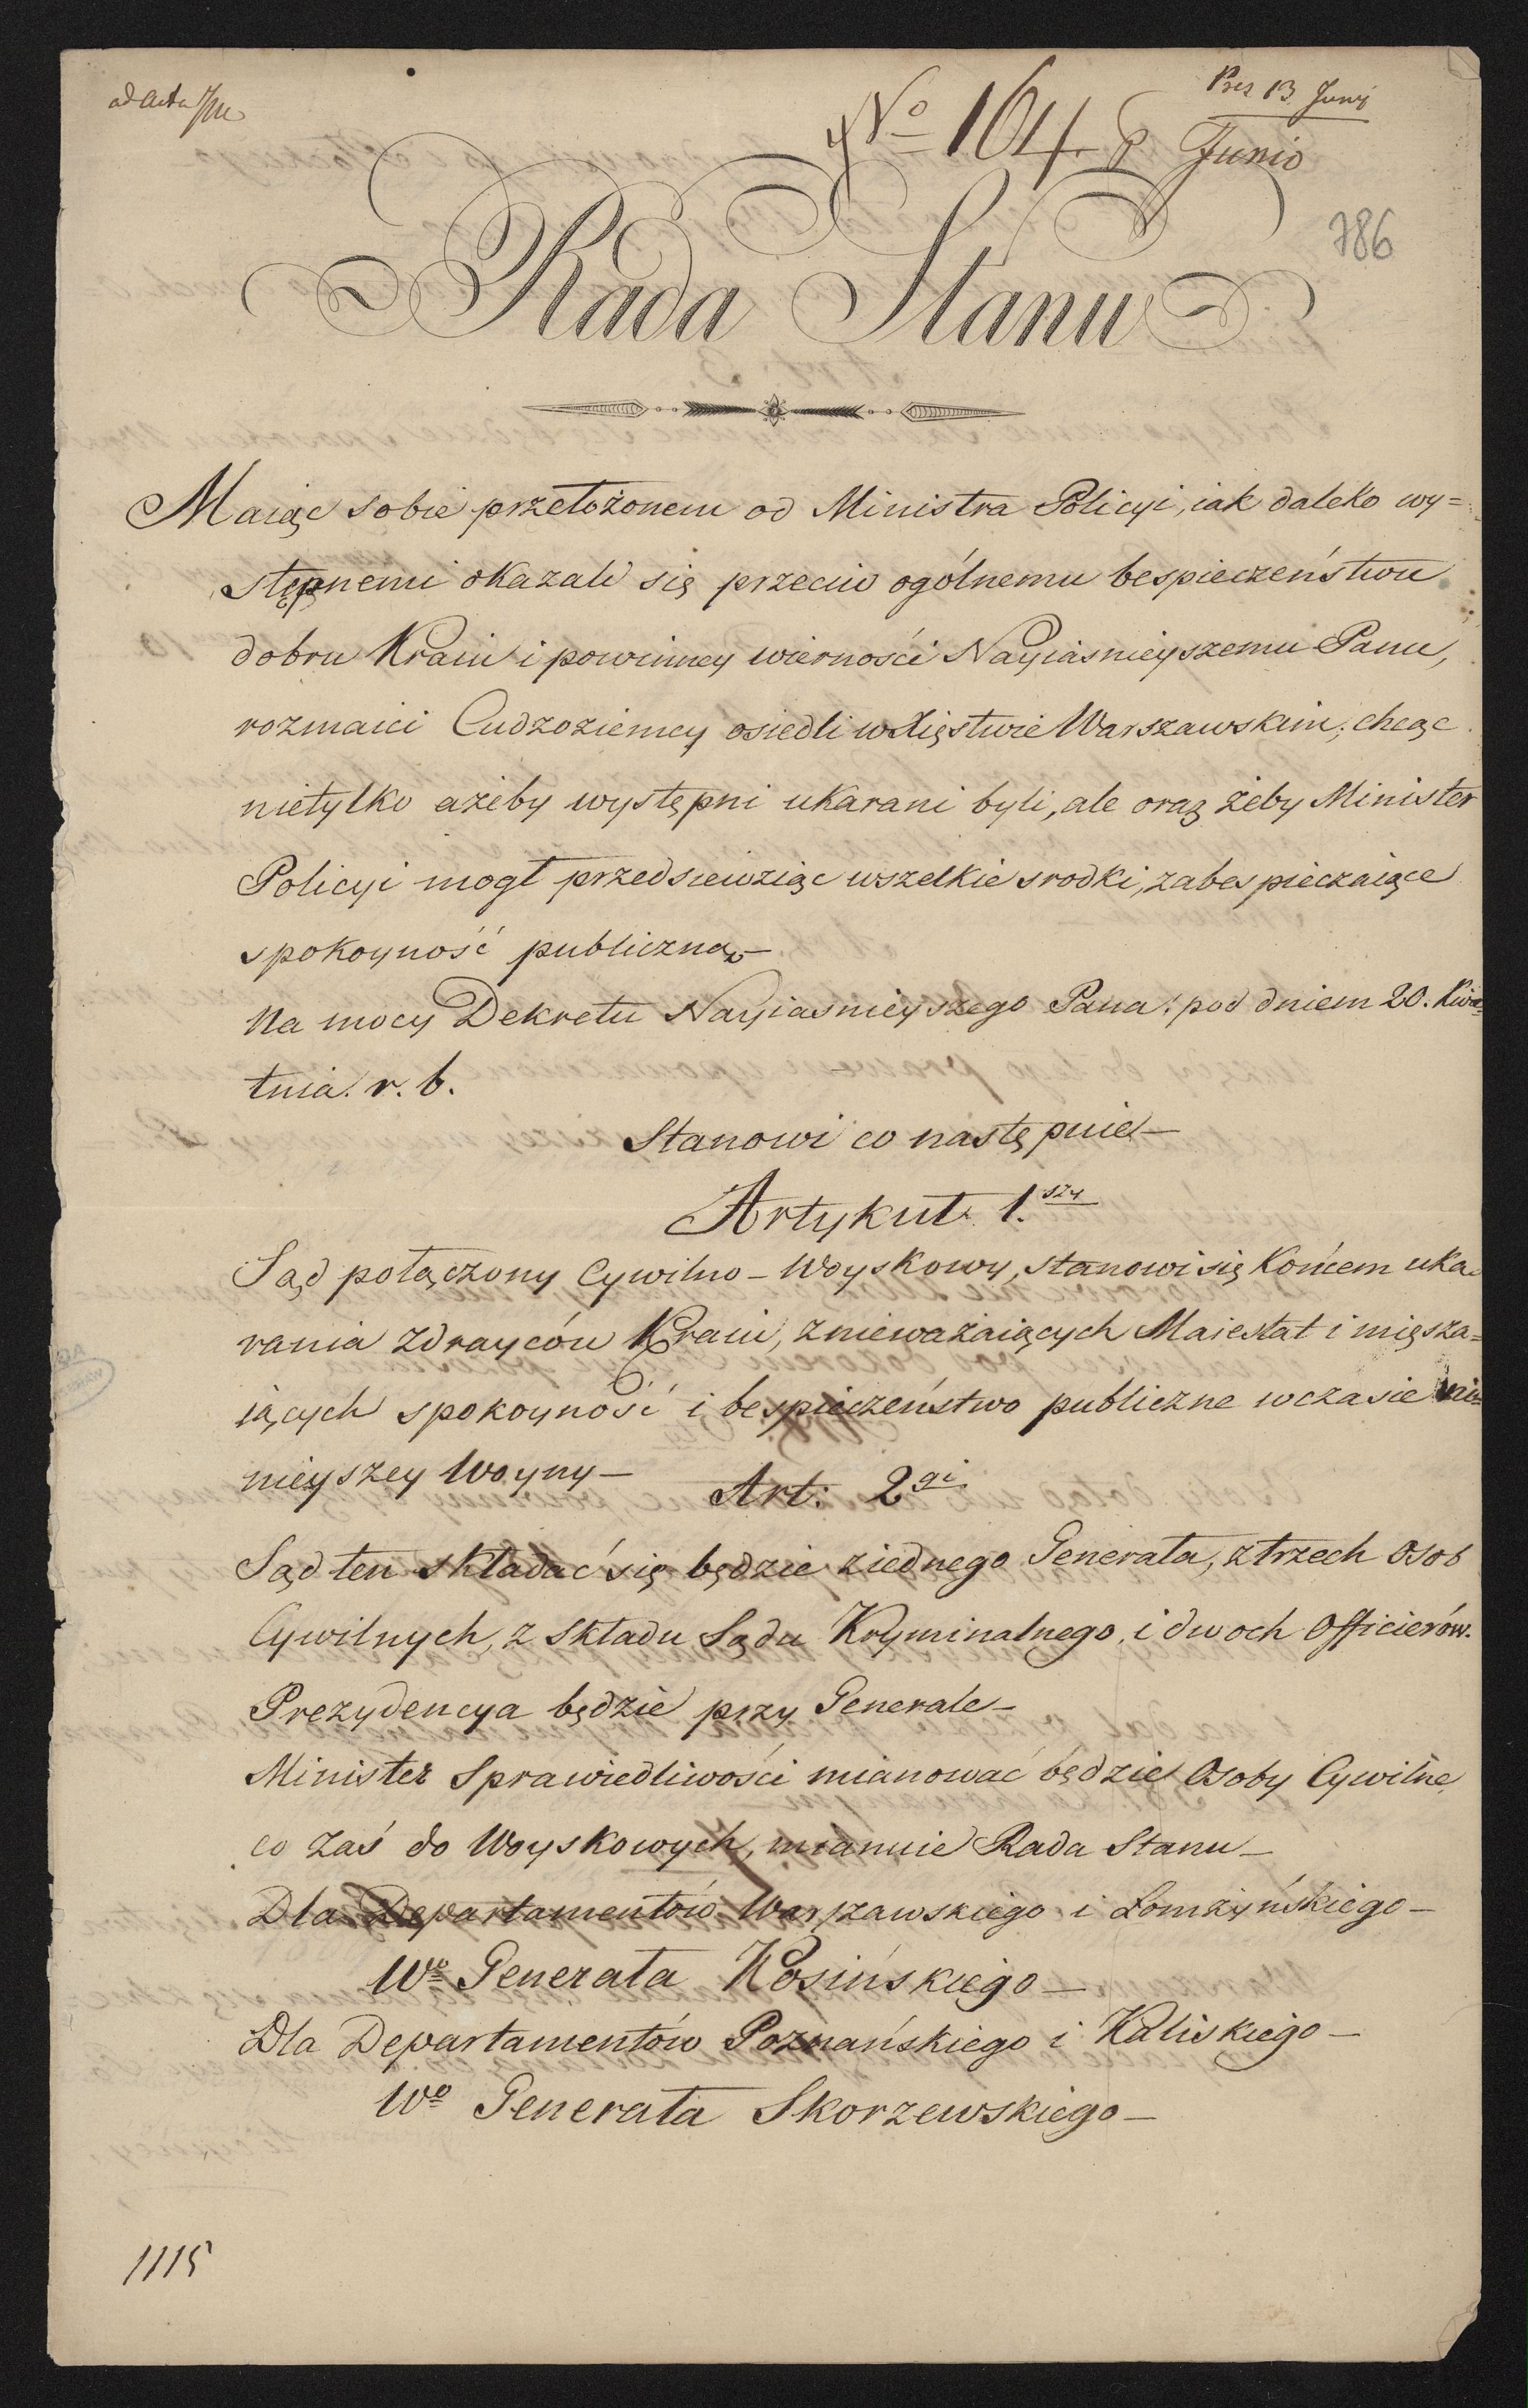 ad Acta
No 164.
Prez 13 Junij
Junio
786
Rada Stanu
Maiąc sobie przełożonem od Ministra Policyi, iak daleko wy=
stępnemi okazali się przeciw ogólnemu bespieczeństwu
dobru Kraiu i powinney wierności Nayiasnieyszemu Panu,
rozmaici Cudzoziemcy osiedli w Xięstwie Warszawskim; chcąc
nietylko ażeby występni ukarani byli, ale oraz żeby Minister
Policyi mogł przedsiewziąc wszelkie srodki, zabespieczaiące
spokoyność publiczną —
Na mocy Dekretu Nayiasnieyszego Pana: pod dniem 20. Kwie=
tnia. r. b.
Stanowi co następuie —
Artykuł 1.szy
Sąd połączony Cywilno - Woyskowy, stanowi się Końcem uka=
rania zdraycóu Kraiu, znieważaiących Maiestat i mięsza=
iących spokoyność i bespieczeństwo publiczne w czasie ni=
nieyszey Woyny —
Art: 2gi
Sąd ten składać się będzie z iednego Generała, z trzech Osob
Cywilnych, z Składu Sądu Kryminalnego, i dwoch Officierów.
Prezydencya będzie przy Generale —
Minister Sprawiedliwości mianować będzie Osoby Cywilne
co zaś do Woyskowych, mianuie Rada Stanu —
Dla Departamentów Warszawskiego i Łomżyńskiego —
Wo Generała Kosińskiego —
Dla Departamentów Poznańskiego i Kaliskiego —
Wo Generała Skorzewskiego —
1115